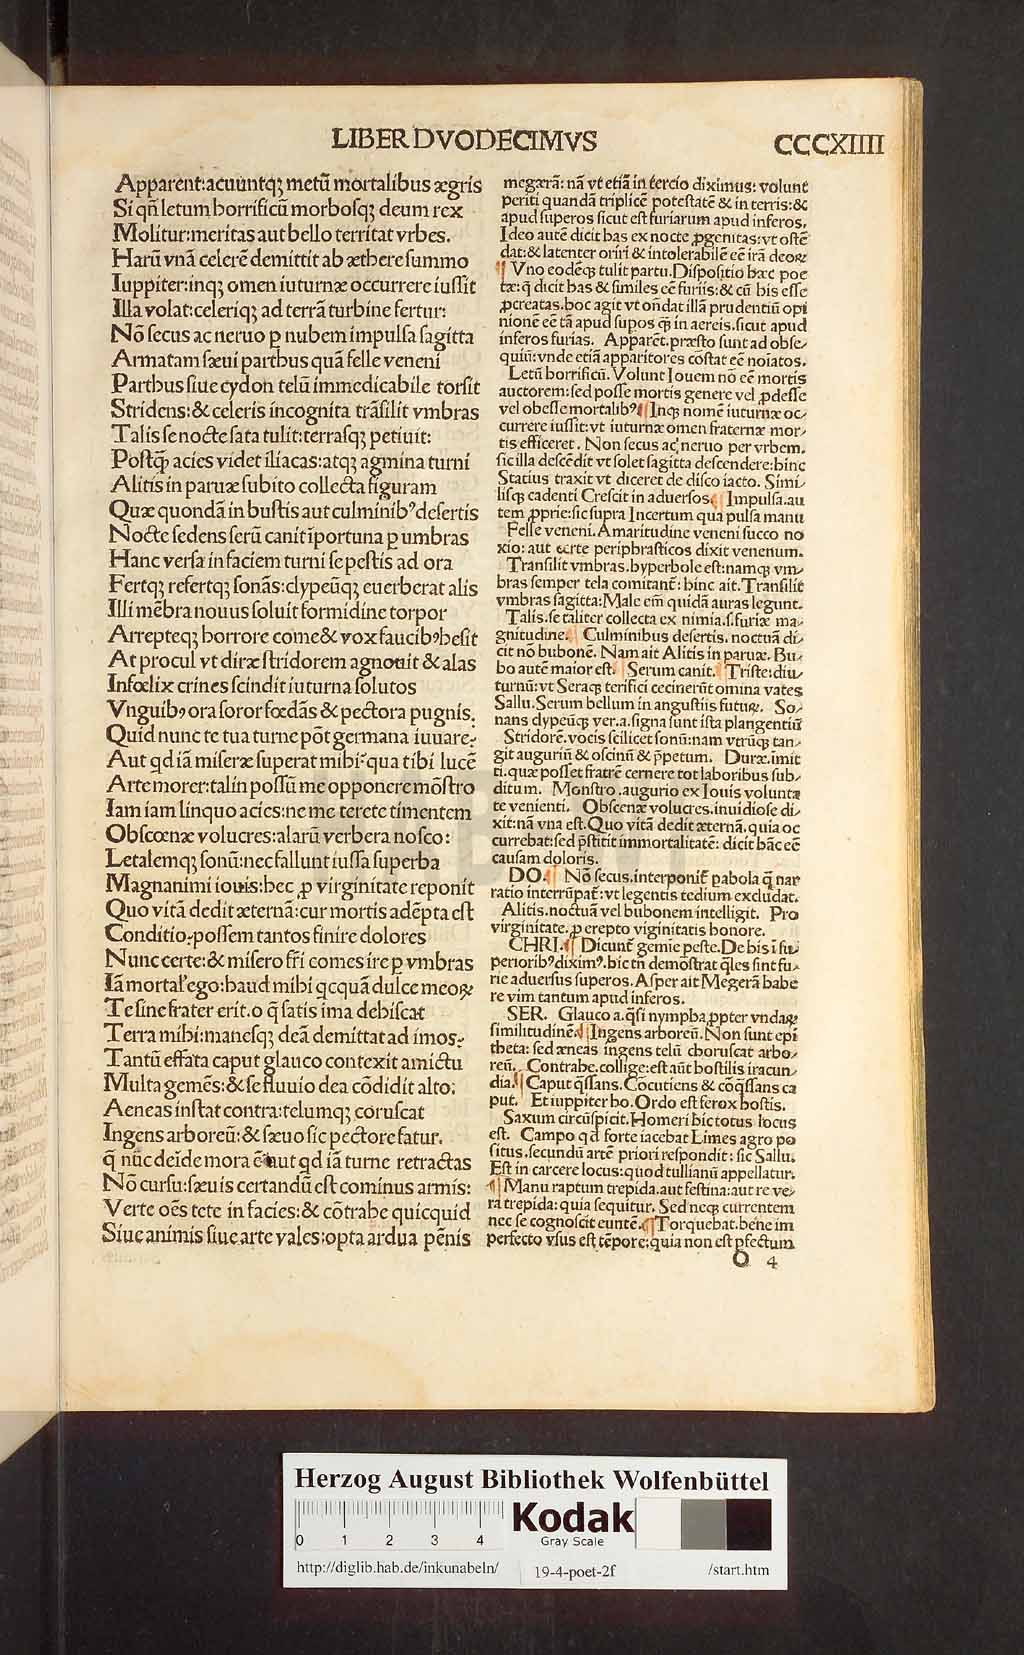 LIBER DVODECIMVS
CCCXIIII
Apparent:acuuntqꝫ metū mortalibus ægris
Si qñ letum horrificū morbosqꝫ deum rex
Molitur:meritas aut bello territat vrbes.
Harū vnā celerē demittit ab æthere summo
Iuppiter:inqꝫ omen iuturnæ occurrere iussit
Illa volat:celeriqꝫ ad terrā turbine fertur:
Nō secus ac neruo p̱ nubem impulsa sagitta
Armatam sæui parthus quā felle veneni
Parthus siue cydon telū immedicabile torsit
Stridens:& celeris incognita trāsilit vmbras
Talis se nocte sata tulit:terrasqꝫ petiuit:
Postq̄ꝫ acies videt iliacas:atqꝫ agmina turni
Alitis in paruæ subito collecta figuram
Quæ quondā in bustis aut culminibꝰ desertis
Nocte sedens serū canit īportuna p̱ umbras
Hanc versa in faciem turni se pestis ad ora
Fertqꝫ refertqꝫ sonās:clypeūqꝫ euerberat alis
Illi mēbra nouus soluit formidine torpor
Arrepteqꝫ horrore come & vox faucibꝰ hesit
At procul vt diræ stridorem agnouit & alas
Infœlix crines scindit iuturna solutos
Vnguibꝰ ora soror fœdās & pectora pugnis.
Quid nunc te tua turne pōt germana iuuare?
Aut qd iā miseræ superat mihi?qua tibi lucē
Arte morer:talin possū me opponere mōstro
Iam iam linquo acies:ne me terete timentem
Obscœnæ volucres:alarū verbera nosco:
Letalemqꝫ sonū:nec fallunt iussa superba
Magnanimi iouis:hec ꝓ virginitate reponit
Quo vitā dedit æternā:cur mortis adēpta est
Conditio?possem tantos finire dolores
Nunc certe:& misero fr̄i comes ire p̱ vmbras
Iā mortal'ego:haud mihi qcquā dulce meoꝝ
Te sine frater erit.o q̄ satis ima dehiscat
Terra mihi:manesqꝫ deā demittat ad imos?
Tantū effata caput glauco contexit amictu
Multa gemēs:& se fluuio dea cōdidit alto:
Aeneas instat contra:telumqꝫ coruscat
Ingens arboreū:& sæuo sic pectore fatur.
q̄ nūc deīde mora ē aut qd iā turne retractas
Nō cursu:sæuis certandū est cominus armis:
Verte oēs tete in facies:& cōtrahe quicquid
Siue animis siue arte vales:opta ardua pēnis
megærā: nā vt etiā in tercio diximus: volunt
periti quandā triplicē potestatē & in terris:&
apud superos sicut est furiarum apud inferos.
Ideo autē dicit has ex nocte ꝓgenitas:vt ostē
dat:& latenter oriri & intolerabilē eē irā deoꝝ
¶ Vno eodēqꝫ tulit partu.Dispositio hæc poe
tæ:q̄ dicit has & similes eē furiis:& cū his esse
ꝓcreatas.hoc agit vt oñdat illā prudentiū opi
nionē eē tā apud supos q̄ꝫ in aereis.sicut apud
inferos furias. Apparēt.præsto sunt ad obse/
quiū:vnde etiā apparitores cōstat eē noiatos.
Letū horrificū.Volunt Iouem nō eē mortis
auctorem:sed posse mortis genere vel ꝓdesse
vel obesse mortalibꝰ¶Inqꝫ nomē iuturnæ oc/
currere iussit:vt iuturnæ omen fraternæ mor/
tis efficeret. Non secus ac neruo per vrbem.
sic illa descēdit vt solet sagitta descendere:hinc
Statius traxit vt diceret de disco iacto. Simi/
lisqꝫ cadenti Crescit in aduersos.¶ Impulsa.au
tem ꝓprie:sic supra Incertum qua pulsa manu
Felle veneni.Amaritudine veneni succo no
xio: aut certe periphrasticos dixit venenum.
Transilit vmbras.hyperbole est:namqꝫ vm/
bras semper tela comitant̄: hinc ait.Transilit
vmbras sagitta:Male em̄ quidā auras legunt.
Talis.se taliter collecta ex nimia.s.furiæ ma/
gnitudine.¶ Culminibus desertis. noctuā di/
cit nō bubonē. Nam ait Alitis in paruæ. Bu/
bo autē maior est.¶ Serum canit.¶Triste:diu/
turnū:vt Seraqꝫ terifici cecinerūt omina vates
Sallu.Serum bellum in angustiis futuꝝ. So/
nans clypeūqꝫ ver.a.signa sunt ista plangentiū
Stridorē.vocis scilicet sonū:nam vtrūqꝫ tan/
git auguriū & oscinū & p̄petum. Duræ.imit
ti.quæ posset fratrē cernere tot laboribus sub/
ditum. Monstro.augurio ex Iouis volunta
te venienti. Obscenæ volucres.inuidiose di/
xit:nā vna est.Quo vitā dedit æternā.quia oc
currebat:sed p̄stitit immortalitatē: dicit hāc eē
causam doloris.
DO.¶ Nō secus.interponit̄ pabola q̄ nar
ratio interrūpat̄:vt legentis tedium excludat.
Alitis.noctuā vel bubonem intelligit. Pro
virginitate.ꝓ erepto viginitatis honore.
CHRI.¶ Dicunt̄ gemīe peste.De his ī su/
perioribꝰ diximꝰ.hic tñ demōstrat q̄les sint fu/
rie aduersus superos.Asper ait Megerā habe
re vim tantum apud inferos.
SER. Glauco a.q̄si nympha ꝓpter vndaꝝ
similitudinē.¶Ingens arboreū.Non sunt epi
theta: sed æneas ingens telū choruscat arbo/
reū. Contrahe.collige:est aūt hostilis iracun/
dia.¶ Caput q̄ssans.Cocutiens & cōq̄ssans ca
put. Et iuppiter ho.Ordo est ferox hostis.
Saxum circūspicit.Homeri hic totus locus
est. Campo qd forte iacebat Limes agro po
situs.secundū artē priori respondit: sic Sallu.
Est in carcere locus:quod tullianū appellatur.
¶ Manu raptum trepida.aut festina:aut re ve/
ra trepida:quia sequitur. Sed neqꝫ currentem
nec se cognoscit euntē.¶Torquebat.bene im
perfecto vsus est tēpore:quia non est ꝑfectum
O 4
HAB
Herzog August Bibliothek Wolfenbüttel
0 1 2 3 4
Kodak
Gray Scale
http://diglib.hab.de/inkunabeln/ 19-4-poet-2f /start.htm